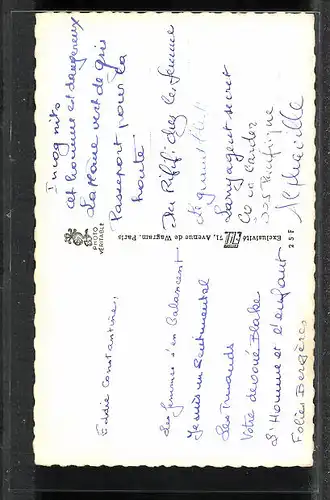 Eddie Constantine,
Les femmes s'en balancent
Je suis un sentimental
Les Truands
Votre dévoué Blake
L'Homme et l'enfant
Folies Bergère,
PHOTO
VÉRITABLE
Exclusivité
71, Avenue de Wagram, Paris
25F
Incognito
cet homme est dangereux
La Môme vert de gris
Passeport pour la
honte
Du Rififi chez les femmes
Lemmy agent secret
Ça va barder
Alphaville